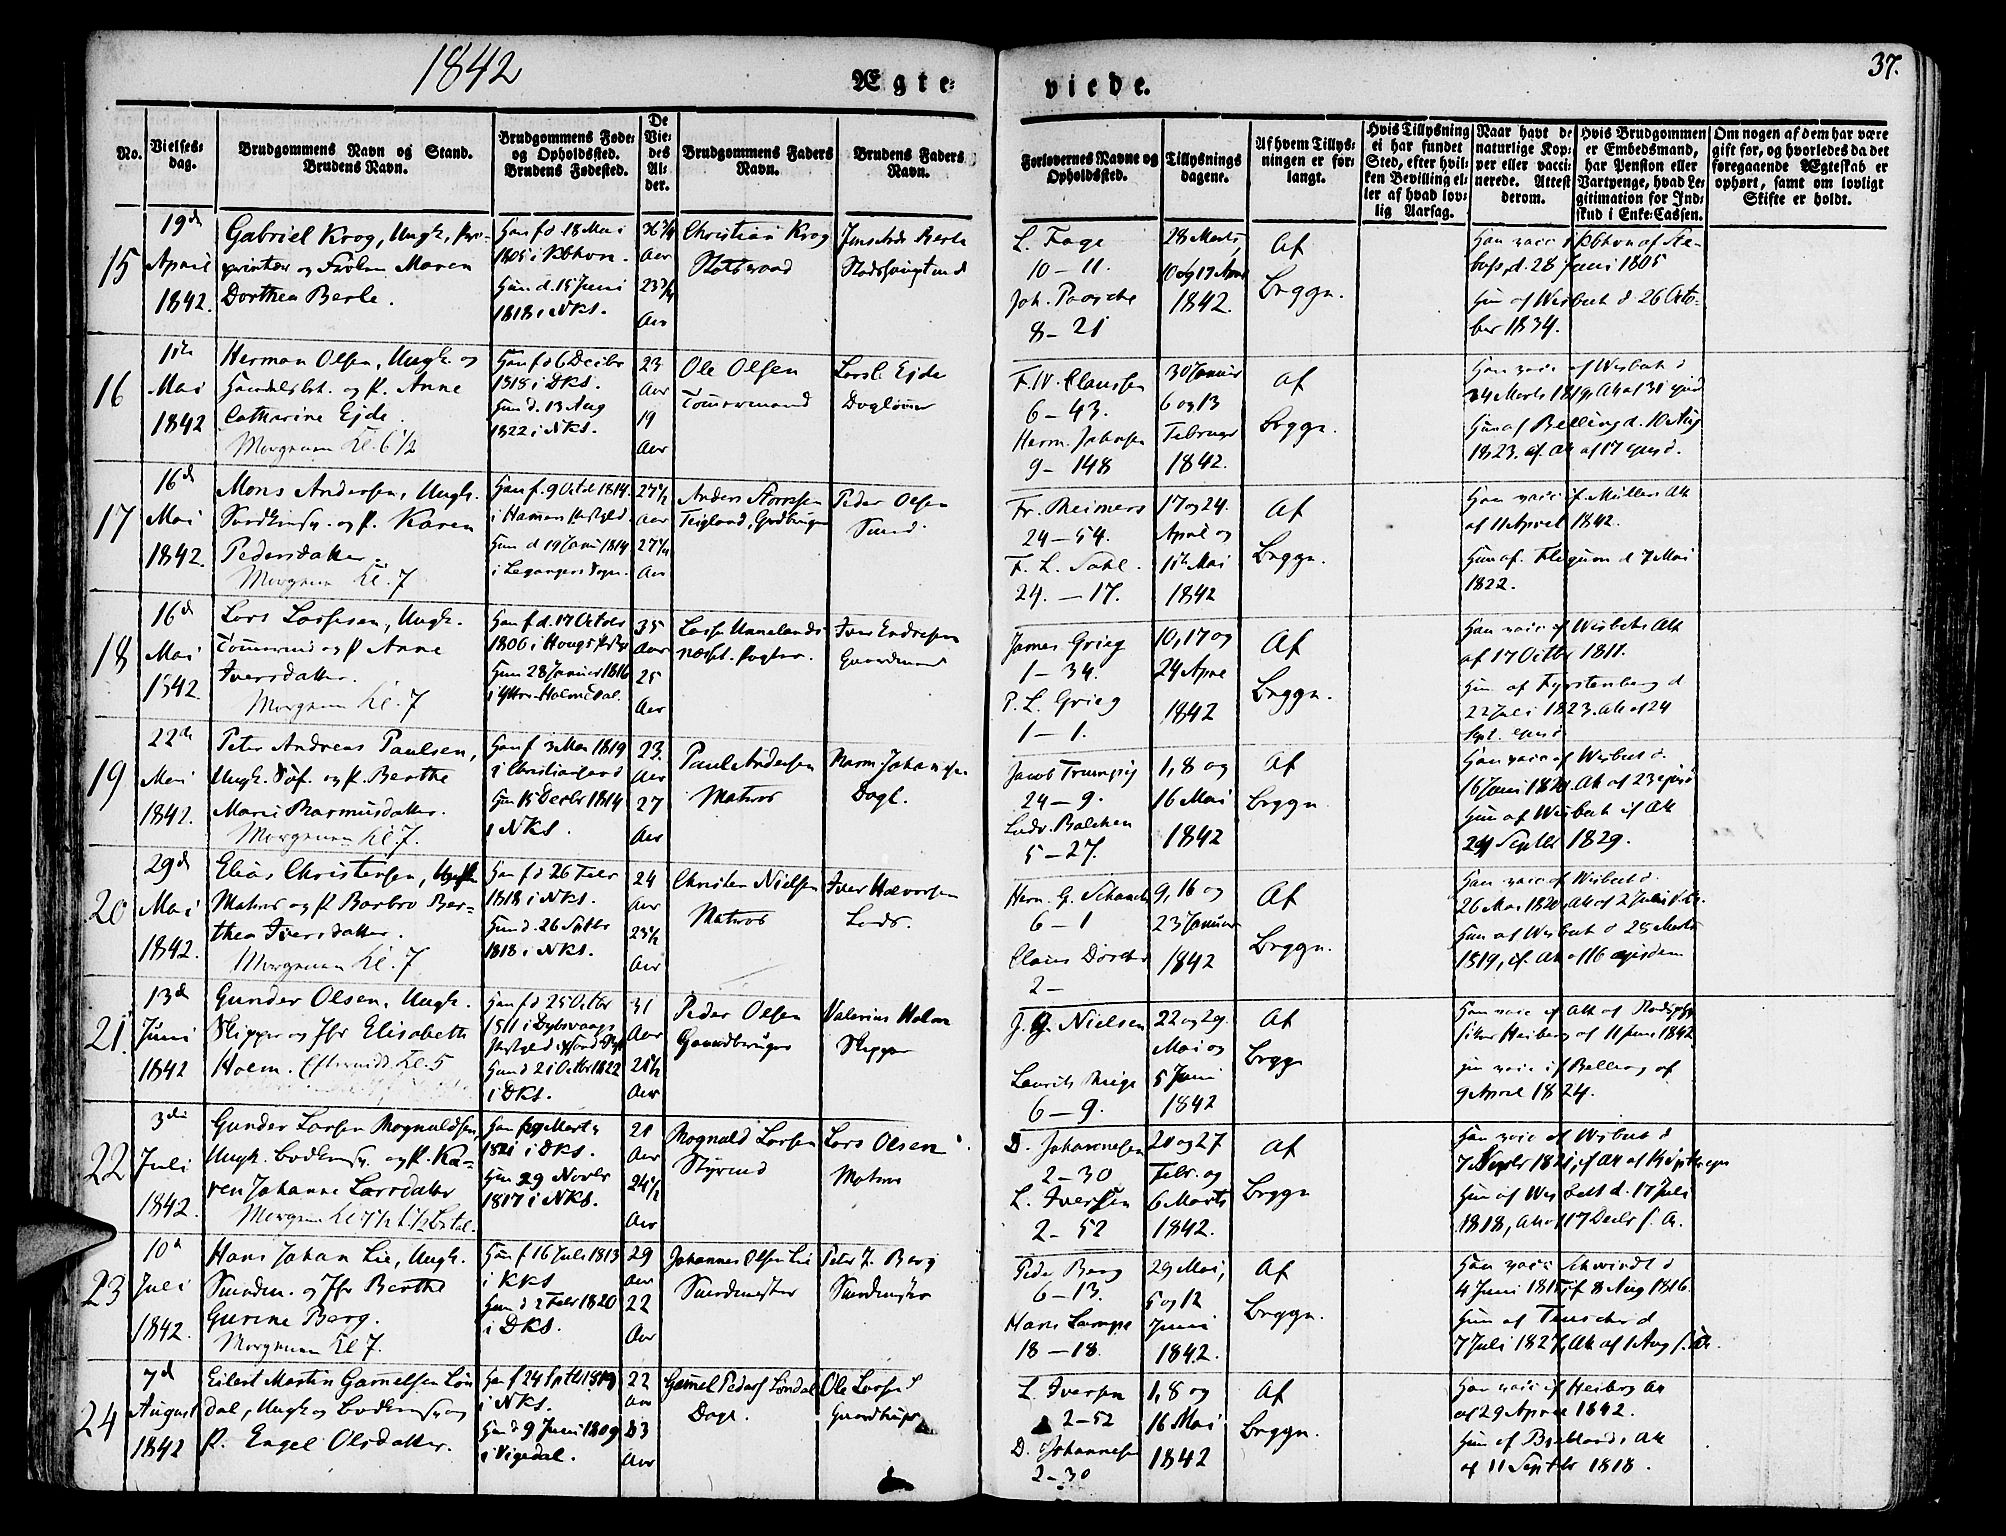 1842
Ægte-
viede.
37.
No.
Vielses-
dag.
Brudgommens Navn og Stand.
Brudens Navn.
Brudgommens Føde-
og Opholdssted.
Brudens Fødested.
De
Vie-
des
Al-
der.
Brudgommens Faders
Navn.
Brudens Faders
Navn.
Forlovernes Navne og
Opholdssted.
Tillysnings
dagene.
Af hvem Tillys-
ningen er for-
langt.
Hvis Tillysning
ei har fundet
Sted, efter hvil-
ken Bevilling el-
ler af hvad lov-
lig Aarsag.
Naar havt de
naturlige Kop-
per eller vacci-
nerede. Attest
derom.
Hvis Brudgommen
er Embedsmand,
har Pension eller
Vartpenge, hvad Le-
gitimation for Ind-
skud i Enke-Cassen.
Om nogen af dem har være
gift før, og hvorledes da det
foregaaende Ægteskab er
ophørt, samt om lovligt
Skifte er holdt.
15
19de
April
1842.
Gabriel Krog, Ungk.
og Frøken Maren
Dorthea Berle.
Han fd 18 Mai
1805 i Kbhvn.
Hun d. 15 Juni
1818 i NKS.
Aar
Aar
Christian Krog
Statsraad
Berle
L. Fage
10 - 11.
Joh. Paasche
8 - 21
28 Marts,
10 og 17 April
1842.
Af
Brggn.
Han vacc i Kbhvn af
d. 28 Juni 1805
Hun af Wisbech d 26 Octo-
ber 1834.
16
1ste
Mai
1842
Herman Olsen, Ungk. og
og P. Anne
Catharine Ejde.
Morgenen Kl. 6 1/2
Han fd 6 Decbr
1818 i DKS.
Hun d. 13 Aug
1822 i NKS.
23
Aar
19
Aar
Ole Olsen
Tømmermand
Lars L. Ejde
Dagløner
F. W. Claussen
6 - 43.
Herm. Johnsen
9 - 148
30 Januar
6 og 13
Februar
1842.
Af
Brggn.
Han vacc af Wisbech d
24 Marts 1819, Att af 31 ejusd
Hun af Belling d. 10 Aug
1823. if. Att af 17 ejusd.
17
16de
Mai
1842.
Mons Andersen, Ungk.
og P. Karen
Pedersdatter.
Morgenen Kl. 7
Han f. 9 Octbr 1814
i Hammer Præstgjeld.
Hun d 19 Janr 1814
i Leganger Sogn.
27 1/2
Aar
27 1/4
Aar
Anders
Teigland, Grdbruger
Peder Olsen
Sund.
Fr. Reimers
24 - 54.
F. L. Dahl.
24. - 17.
17 og 24.
April og
1ste Mai
1842
Af
Brggn.
Han vacc if Müllers Att
af 11 April 1842.
Hun af. d 7 Mai
1822.
18
16de
Mai
1842.
Lars Larsen, Ungk.
Tømmermd og P. Anne
Iversdatter.
Morgenen Kl. 7
Han f d. 17 Octobr
1806 i
Hun 28 Januar 1816
i Yttre Holmedal.
35
Aar
25
Aar
Iver Endresen
Gaardmand
James Grieg
1 - 34.
P. L. Grieg
1 - 1.
10, 17 og
24 April
1842
Af
Brggn.
Han vacc if Wisbechs Att
af 17 Octbr 1811.
Hun af Fyrstenberg d
22 Juli 1823. Att af 24
Sept. ejusd
19
22de
Mai
1842.
Peter Andreas Paulsen,
Ungk. Søf. og P. Berthe
Marie Rasmusdatter.
Morgenen Kl 7.
Han f 3 Mai 1819
i Christiansand
Hun 15 Decbr 1814
i NKS.
23
Aar
27
Aar
Paul Andersen
Matros
Johannesen
Dagl.
Jacob Trumpy
24 - 9.
Ludv. Balchen
5 - 27.
1, 8 og
16 Mai
1842
Af
Brggn.
Han vacc af Wisbech d.
16 Juni 1820. Att af 23 ejusd
Hun af Wisbech if Att
24 Septbr 1829.
20
29de
Mai
1842.
Elias Christensen, Ungk
Matros og P. Barbro Ber-
thea Iversdatter.
Morgenen Kl. 7
Han f d 26 Febr
1818 i NKS.
Hun d. 26 Septbr
1818 i NKS.
24
Aar
23 1/2
Aar
Christen Nielsen
Matros
Iver Halvorsen
Lods.
Herm. G. Schanche
6 - 1
Claus
2 -
9, 16 og
23 Januar
1842
Af
Brggn.
Han vacc af Wisbech d.
26 Mai 1820, Att af 2 Juli
Hun af Wisbech d 25 Marts
1819, if. Att af 16 ejusdem
21.
13de
Juni
1842
Gunder Olsen, Ungk.
Skipper og Jfr Elisabeth
Holm. Eftermidd. Kl. 5
Han f d 25 Octbr
1811 i Dybvaags
Hun d 21 Octbr 1822
i DKS.
31
Aar
21 1/2
Aar
Peder Olsen
Gaardbruger
Valerius Holm
Skipper
J. G. Nielsen
Laurits
6 - 9.
22 og 29.
Mai og
5 Juni
1842
Af
Brggn
Han vacc if Att af
Heiberg af 11 Juni 1842
Hun vacc if Belling af
9 April 1824.
22
3die
Juli
1842.
Gunder Larsen Rognaldsen,
Ungk. Bødkersv. og P. Ka-
ren Johanne Larsdatter
1821 i DKS.
Hun 29 Novbr
1817 i NKS.
21
Aar
24 1/2
Aar
Rognald Larsen
Styrmd
Lars Olsen
Matros
D. Johannesen
2 - 30
L. Iversen
2 - 52
20 og 27
Febr. og
6 Marts
1842.
Af
Brggn
Han vacc af Wisbech d
Hun af Wisbech d. 17 Juli
1818, Att af 17 Decbr s. A.
23
10de
Juli
1842.
Hans Johan Lie, Ungk.
Snedm. og Jfr Berthe
Gurine Berg.
Morgenen Kl 7.
Han f 16 Juli 1813
i KKS
Hun d 2 Febr 1820
i DKS.
29
Aar
22
Aar
Johannes Olsen Lie
Snedmester
Peter J. Berg
Snedmester
Peder Berg
6 - 13.
Hans
18 - 18.
29 Mai,
5 og 12
Juni
1842.
Af
Brggn.
Han vacc Schwindt d
4 Juni 1815, if 8 Aug 1816.
Hun af Fuscher d
7 Juli 1827, Att af 1 Aug s. A.
24
7de
August
1842
Eilert Martin Gamelsen Løn-
dal, Ungk og Bødkersv og
P. Engel Olsdatter.
Han f 24 Septbr 1819
i NKS.
Hun d 9 Juni 1809
i Vigedal.
22
Aar
33
Aar
Gamel Peders Løndal
Dagl.
Ole Larsen
Gaardbruger
L. Iversen
2 - 52
D. Johannesen
2 - 30
1, 8 og
16 Mai
1842
Af
Brggn.
Han vacc if Heiberg Att
af 29 April 1842.
Hun af Att
af 11 Septbr 1818.